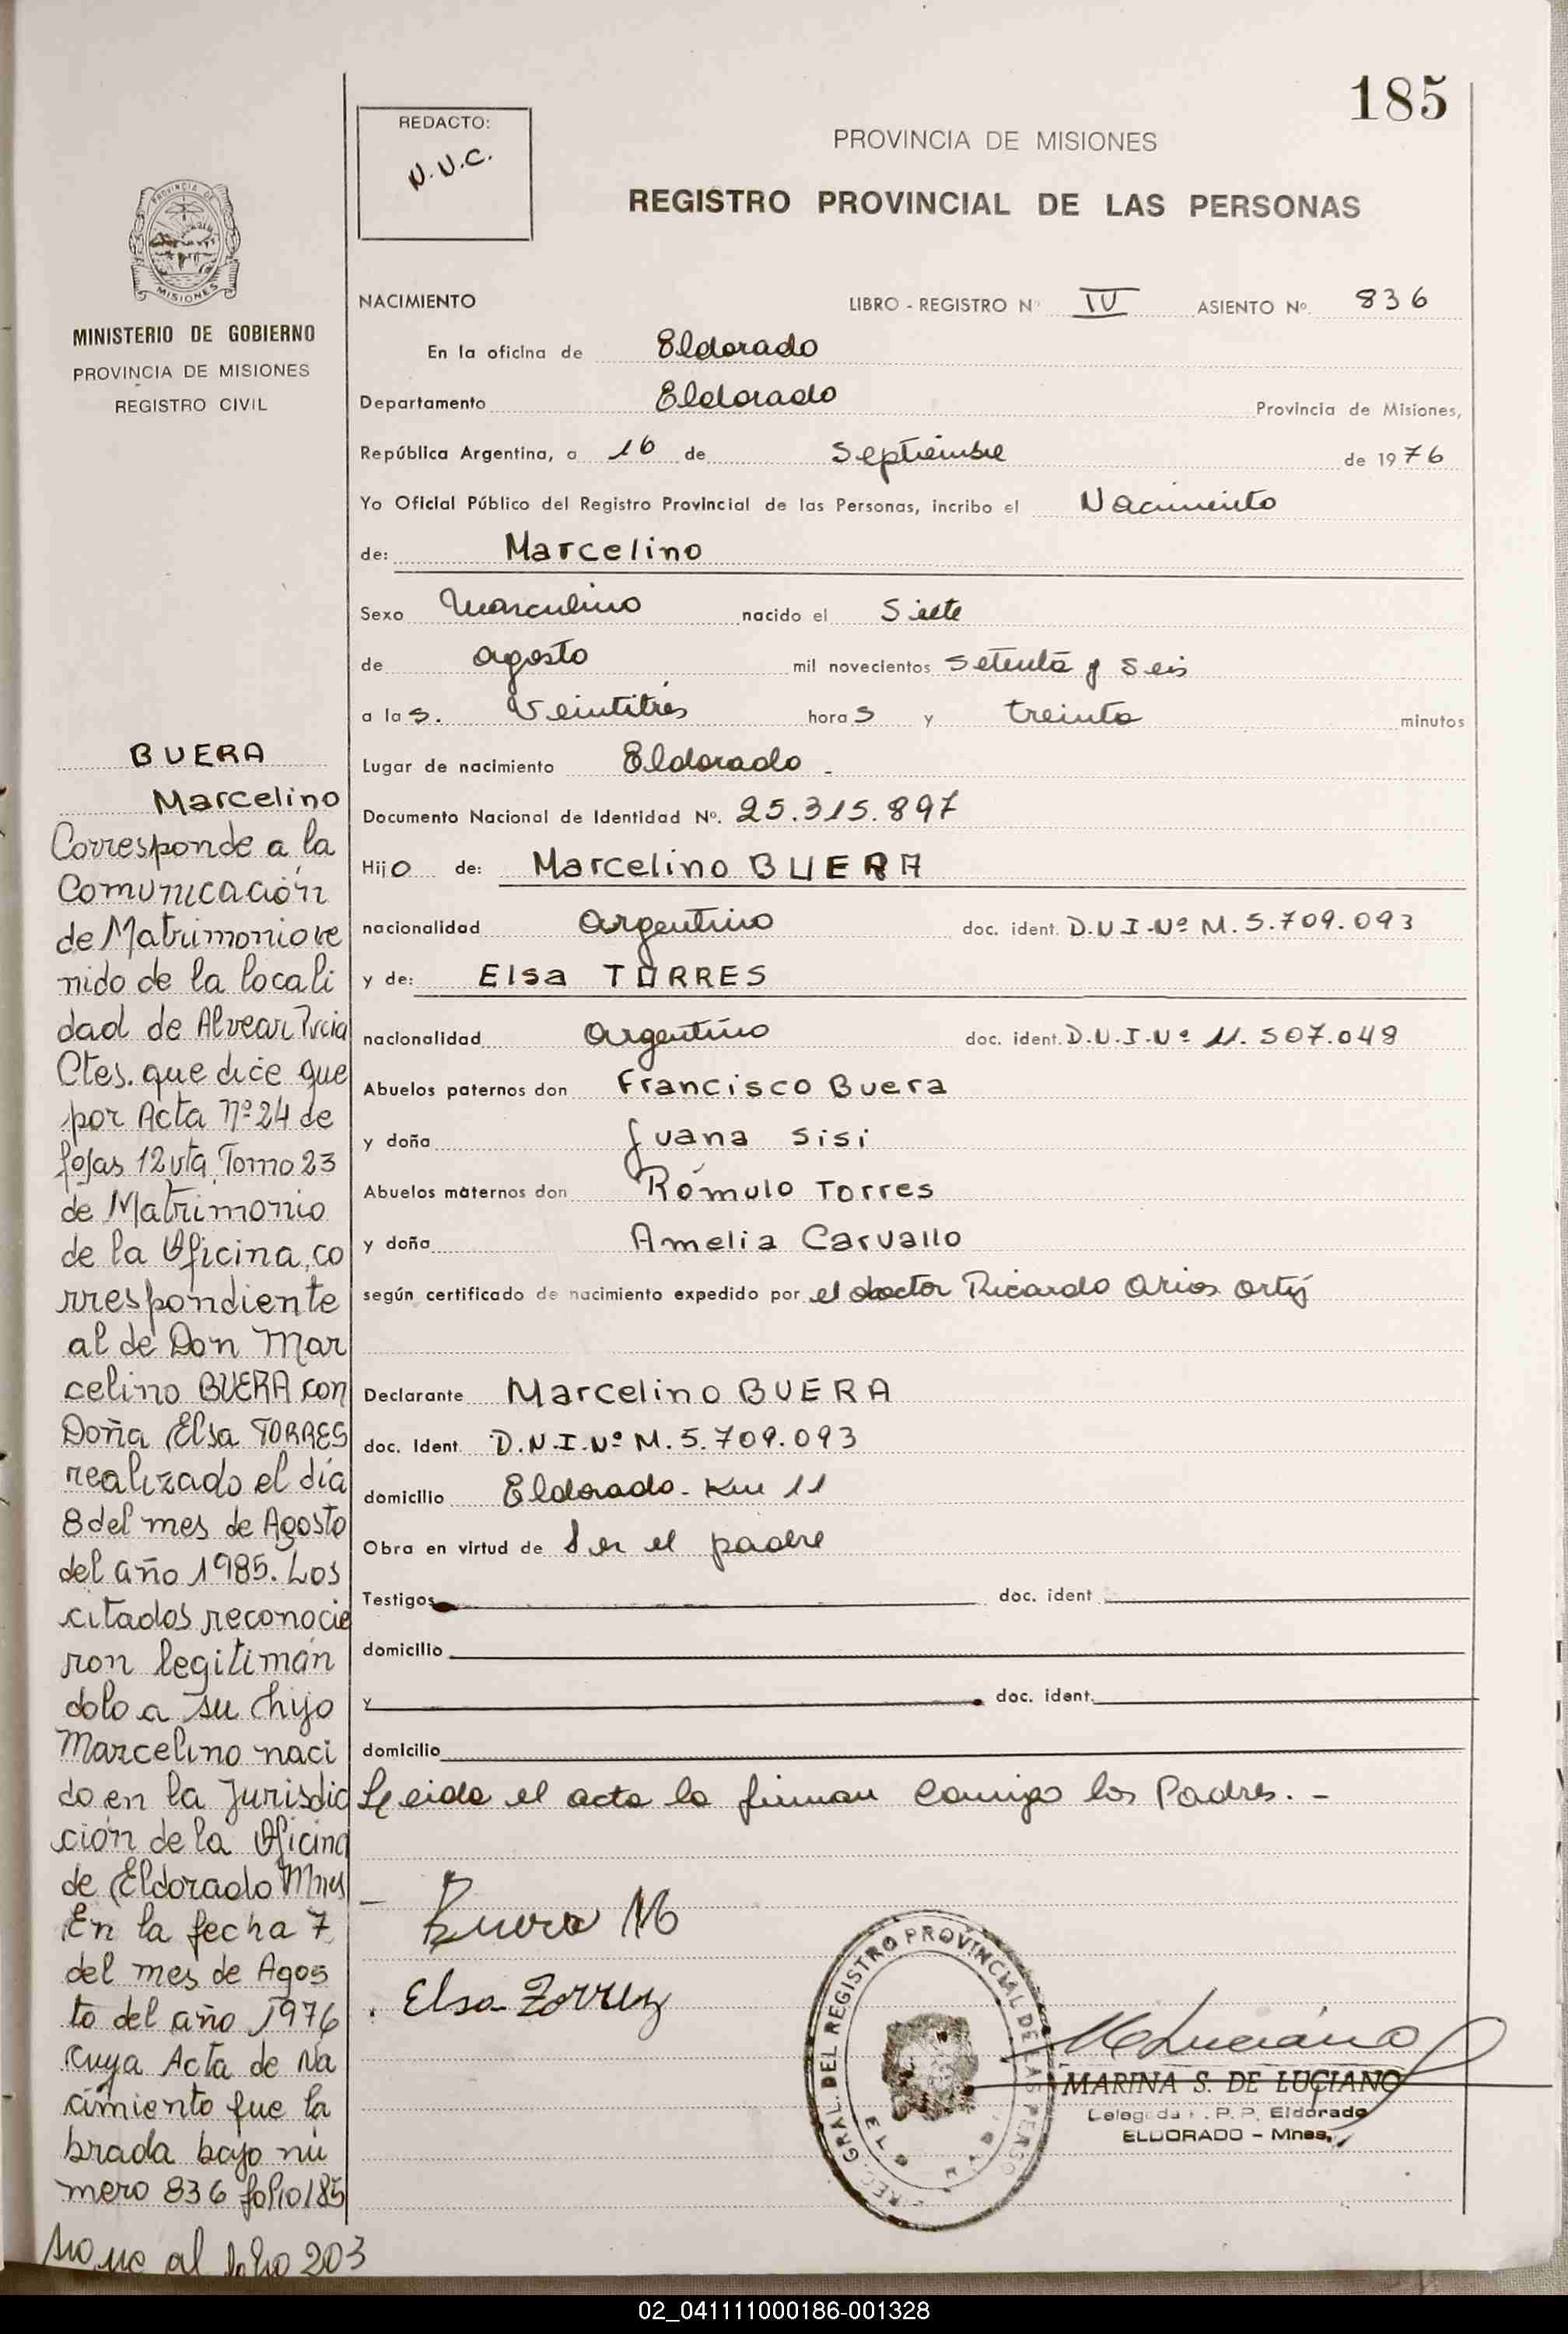 185
REDACTO:
N.V.C.
PROVINCIA DE MISIONES
REGISTRO PROVINCIAL DE LAS PERSONAS
PROVINCIA DE
MISIONES
MINISTERIO DE GOBIERNO
PROVINCIA DE MISIONES
REGISTRO CIVIL
NACIMIENTO LIBRO - REGISTRO Nº IV ASIENTO Nº 836
En la oficina de Eldorado
Departamento Eldorado Provincia de Misiones,
República Argentina, a 16 de Septiembre de 1976
Yo Oficial Público del Registro Provincial de las Personas, incribo el Nacimiento
de: Marcelino
Sexo Masculino nacido el Siete
de agosto mil novecientos setenta y seis
a las. Veintitrés horas y treinta minutos
Lugar de nacimiento Eldorado -
Documento Nacional de Identidad Nº. 25.315.897
Hijo de: Marcelino BUERA
nacionalidad Argentino doc. ident. D.N.I.Nº M.5.709.093
y de: Elsa TORRES
nacionalidad Argentino doc. ident. D.N.I.Nº 11.507.048
Abuelos paternos don Francisco Buera
y doña Juana Sisi
Abuelos maternos don Rómulo Torres
y doña Amelia Carvallo
según certificado de nacimiento expedido por el doctor Ricardo Arios Ortiz
Declarante Marcelino BUERA
doc. Ident D.N.I.Nº M.5.709.093
domicilio Eldorado - Km 11
Obra en virtud de Ser el padre
Testigos doc. ident
domicilio
y doc. ident.
domicilio
Leida el acta la firman conmigo los Padres. -
Buera M
Elsa Torrez
REG. GRAL. DEL REGISTRO PROVINCIAL DE LAS PERSO
M Luciano
MARINA S. DE LUCIANO
Delegada R.P.P. Eldorado
ELDORADO - Mnes.
BUERA
Marcelino
Corresponde a la
Comunicación
de Matrimonio ve
nido de la locali
dad de Alvear Pvcia
Ctes. que dice que
por Acta Nº 24 de
fojas 12 vta Tomo 23
de Matrimonio
de la Oficina, co
rrespondiente
al de Don Mar
celino BUERA con
Doña Elsa TORRES
realizado el día
8 del mes de Agosto
del año 1985. Los
citados reconocie
ron legitimán
dolo a su hijo
Marcelino naci
do en la Jurisdic
ción de la Oficina
de Eldorado Mnes
En la fecha 7
del mes de Agos
to del año 1976
cuya Acta de Na
cimiento fue la
brada bajo nú
mero 836 folio 185
al folio 203
02_041111000186-001328